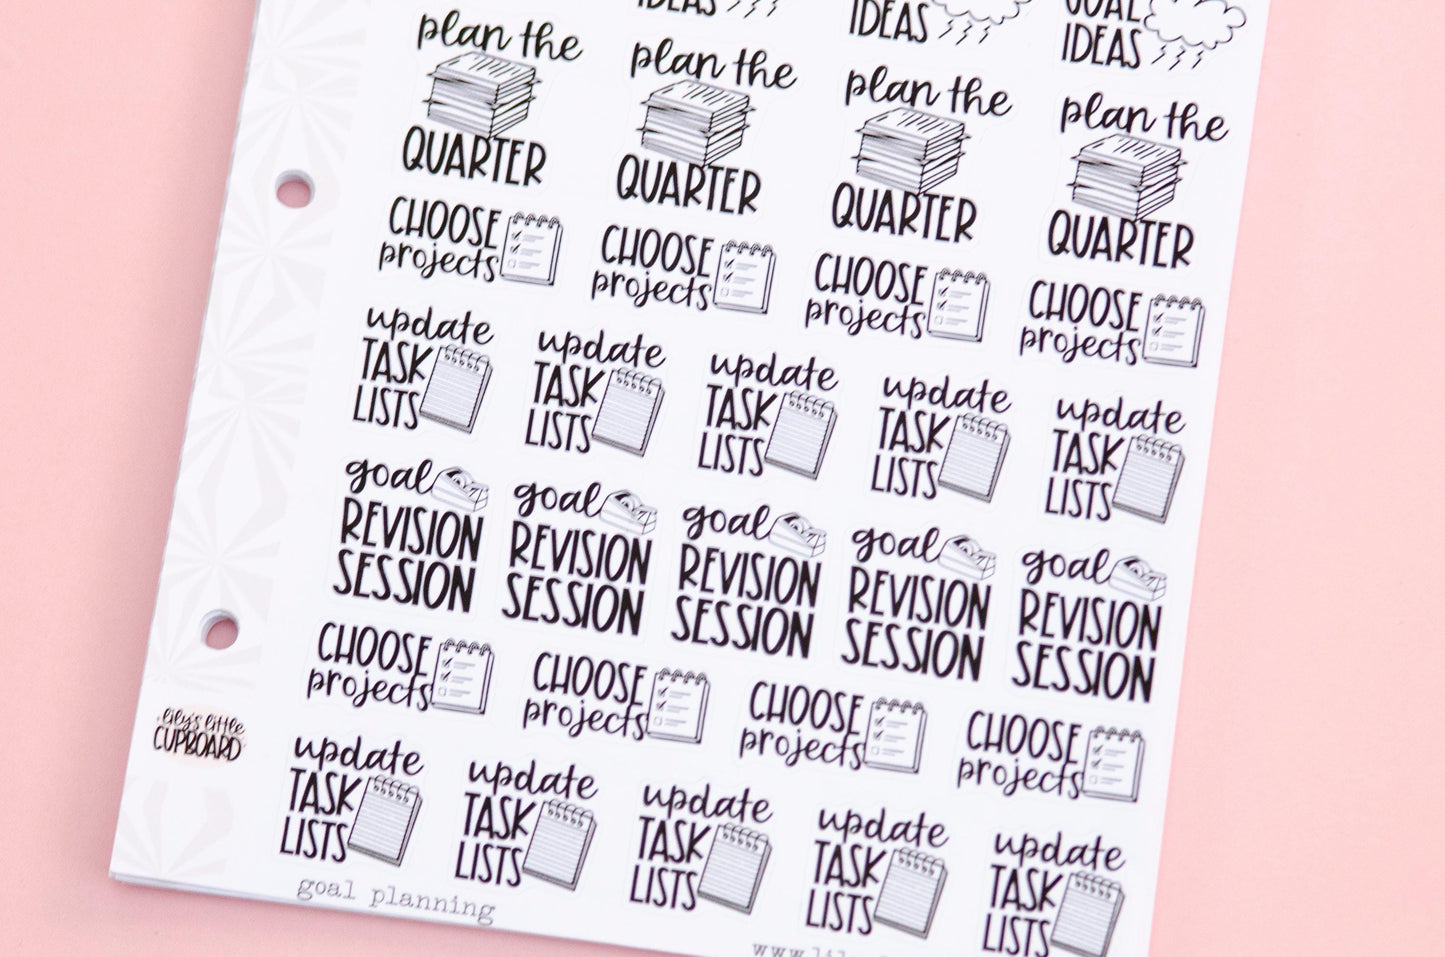 IDEAS IDEAS GOAL IDEAS
plan the QUARTER plan the QUARTER plan the QUARTER plan the QUARTER
CHOOSE projects CHOOSE projects CHOOSE projects CHOOSE projects
update TASK LISTS update TASK LISTS update TASK LISTS update TASK LISTS update TASK LISTS
goal REVISION SESSION goal REVISION SESSION goal REVISION SESSION goal REVISION SESSION goal REVISION SESSION
CHOOSE projects CHOOSE projects CHOOSE projects CHOOSE projects
lily's little
CUPBOARD
update TASK LISTS update TASK LISTS update TASK LISTS update TASK LISTS update TASK LISTS
goal planning